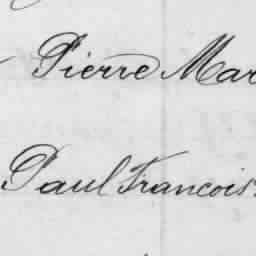 Pierre Mar
Paul Francois